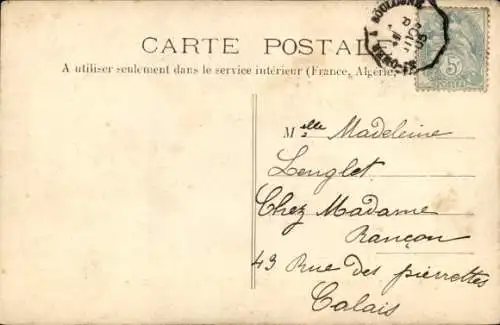 CARTE POSTALE
A utiliser seulement dans le service intérieur (France, Algérie
Mlle Madeleine
Lenglet
Chez Madame
Rançon
43 Rue des pierrettes
Calais
BOULOGNE
5